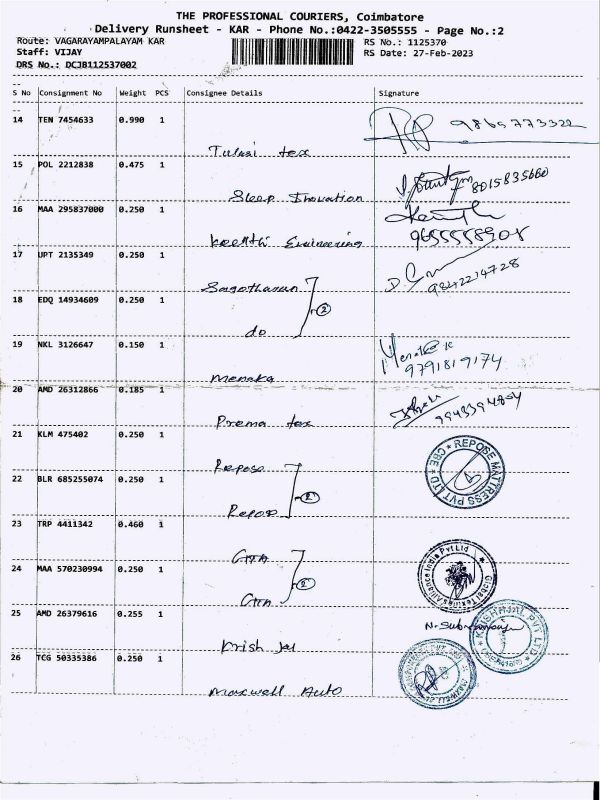 THE PROFESSIONAL COURIERS, Coimbatore
Delivery Runsheet - KAR - Phone No.:0422-3505555 - Page No.:2
Route: VAGARAYAMPALAYAM KAR RS No.: 1125370
Staff: VIJAY RS Date: 27-Feb-2023
DRS No.: DCJB112537002
S No Consignment No Weight PCS Consignee Details Signature
14 TEN 7454633 0.990 1 9865773322
Tulasi tex
15 POL 2212838 0.475 1
Sleep Inovation 8015835660
16 MAA 295837000 0.250 1
keerthi Engineering 9655558908
17 UPT 2135349 0.250 1
Sagotharan 9842214728
18 EDQ 14934609 0.250 1 2
do
19 NKL 3126647 0.150 1 Menaka
9791819174
menaka
20 AMD 26312866 0.185 1
Prema tex
21 KLM 475402 0.250 1 REPOSE MATTRESS PVT LTD CBE
Repose
22 BLR 685255074 0.250 1 2
Repose
23 TRP 4411342 0.460 1
GTA Global Textiles Alliance India Pvt Ltd
24 MAA 570230994 0.250 1 2
GTA
25 AMD 26379616 0.255 1 KRISHJAI PVT LTD
Krish Jai
26 TCG 50335386 0.250 1
Maxwell Auto